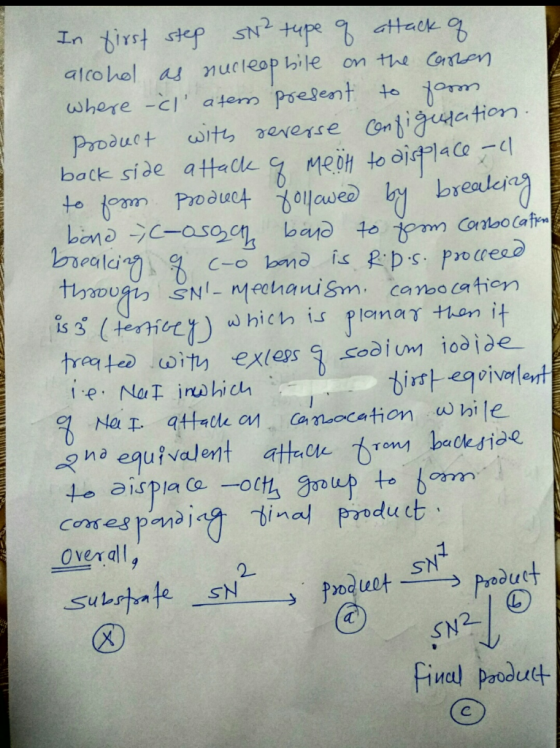 In first step SN² type of attack of
alcohol as nucleophile on the carbon
where -Cl' atom present to form
product with reverse configuration.
back side attack of MeÖH to displace -Cl
to form product followed by breaking
bond → C-OSO2CH3 bond to form carbocation
breaking of C-O bond is R.D.S. procceed
through SN1- Mechanism. carbocation
is 3° (tertiary) which is planar then if
treated with excess of sodium iodide
i.e. NaI inwhich first equivalent
of NaI attack on carbocation while
2nd equivalent attack from backside
to displace -OCH3 group to form
corresponding final product.
Overall,
Substrate SN2 → product SN1 → product
(X) (a) (b)
SN2 ↓
final product
(c)